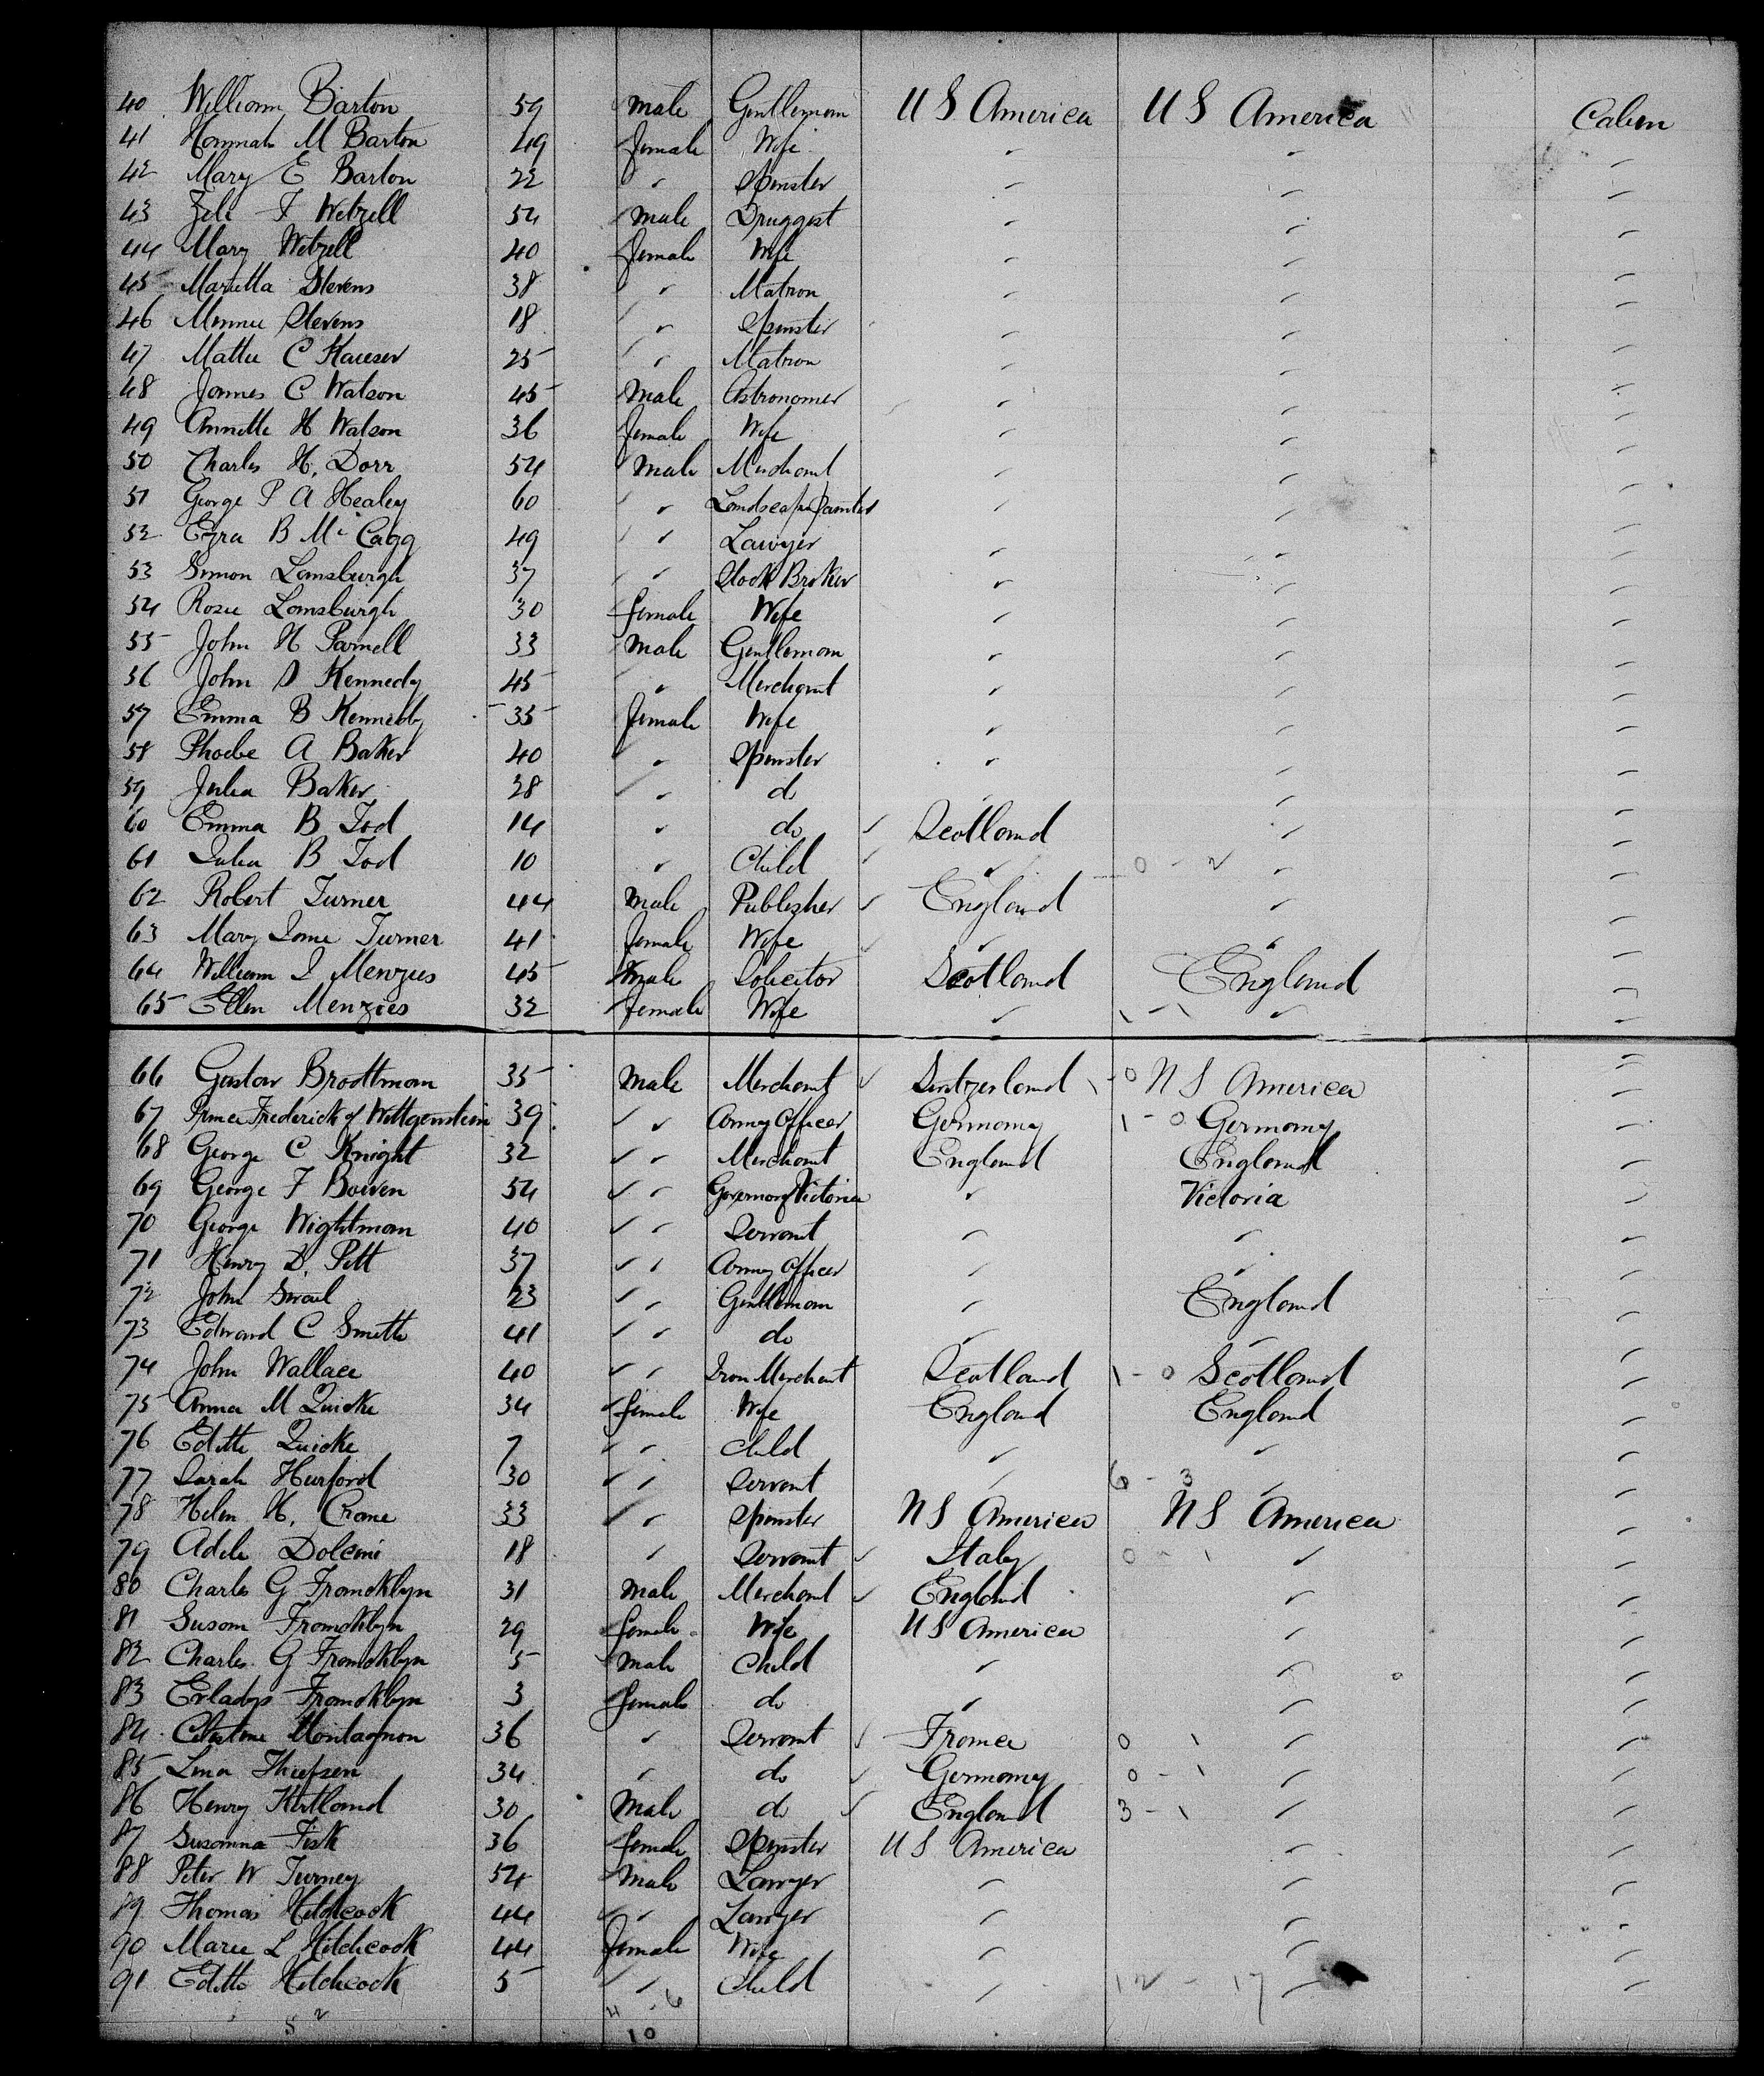 40 William Barton 59 Male Gentleman U S America U S America Cabin
41 Hannah M Barton 49 female Wife " " "
42 Mary E Barton 22 " Spinster " " "
43 F Wetzell 54 Male Druggist " " "
44 Mary Wetzell 40 female Wife " " "
45 Marietta Stevens 38 " Matron " " "
46 Minnie Stevens 18 " Spinster " " "
47 Mattie C Kaeser 25 " Matron " " "
48 James C Watson 45 Male Astronomer " " "
49 Annette H Watson 36 female Wife " " "
50 Charles H. Dorr 54 Male Merchant " " "
51 George P A Healey 60 " Landscape Painter " " "
52 Ezra B Mc Cagg 49 " Lawyer " " "
53 Simon Lansburgh 37 " Stock Broker " " "
54 Rosie Lansburgh 30 female Wife " " "
55 John H Parnell 33 Male Gentleman " " "
56 John S Kennedy 45 " Merchant " " "
57 Emma B Kennedy 35 female Wife " " "
58 Phoebe A Baker 40 " Spinster " " "
59 Julia Baker 28 " do " " "
60 Emma B Tod 14 " do Scotland " "
61 Julia B Tod 10 " Child " 0 - 2 " "
62 Robert Turner 44 Male Publisher England " "
63 Mary Jane Turner 41 female Wife " " "
64 William J Menzies 45 Male Solicitor Scotland England "
65 Ellen Menzies 32 female Wife " 1 - 1 " "
66 Gustav Brodtman 35 Male Merchant Switzerland 1 - 0 U S America "
67 Prince Frederick of Wittgenstein 39 " Army Officer Germany 1 - 0 Germany "
68 George C Knight 32 " Merchant England England "
69 George F Bowen 54 " Governor of Victoria " Victoria "
70 George Wightman 40 " Servant " " "
71 Henry D. Pitt 37 " Army Officer " " "
72 John 23 " Gentleman " England "
73 Edward C Smith 41 " do " " "
74 John Wallace 40 " Iron Merchant Scotland 1 - 0 Scotland "
75 Anna M Quicke 34 female Wife England England "
76 Edith Quicke 7 " Child " " "
77 Sarah Hurford 30 " Servant " 6 - 3 " "
78 Helen H. Crane 33 " Spinster U S America U S America "
79 Adele Dolcini 18 " Servant Italy 0 - 1 " "
80 Charles G Francklyn 31 Male Merchant England " "
81 Susan Francklyn 29 female Wife U S America " "
82 Charles G Francklyn 5 Male Child " " "
83 Francklyn 3 female do " " "
84 Celestine Montagnon 36 " Servant France 0 1 " "
85 Lina 34 " do Germany 0 - 1 " "
86 Henry Kirtland 30 Male do England 3 - 1 " "
87 Susanna Fisk 36 female Spinster U S America " "
88 Peter W Turney 54 Male Lawyer " " "
89 Thomas Hitchcock 44 " Lawyer " " "
90 Marie L Hitchcock 44 female Wife " " "
91 Edith Hitchcock 5 " Child " 12 - 17 " "
52 4 . 6
10